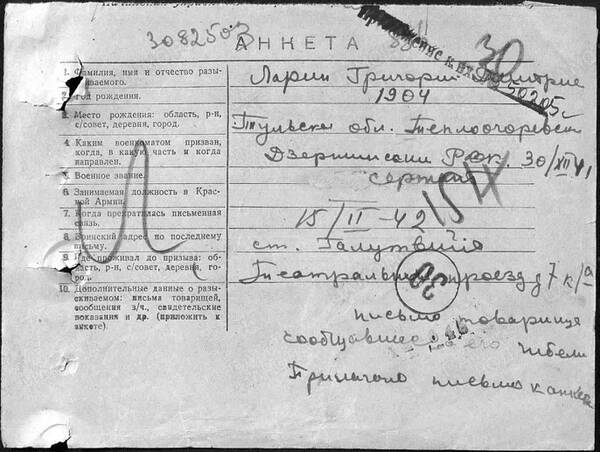 3082503
АНКЕТА
30
50205
1. Фамилия, имя и отчество разы-
скиваемого.
Ларин Григорий Дмитрие
2. Год рождения.
1904
3. Место рождения: область, р-н,
с/совет, деревня, город.
Тульская обл. Теплоогаревск
4. Каким военкоматом призван,
когда, в какую часть и когда
направлен.
Дзержинским Рвк. 30/XII 41
5. Военное звание.
сержант
6. Занимаемая должность в Крас-
ной Армии.
7. Когда прекратилась письменная
связь.
15/II-42
8. Воинский адрес по последнему
письму.
ст.
9. Где проживал до призыва: об-
ласть, р-н, с/совет, деревня, го-
род.
Театральный проезд д 7 к/а
30
10. Дополнительные данные о разы-
скиваемом: письма товарищей,
сообщения з/ч., свидетельские
показания и др. (приложить к
анкете).
письмо товарища
сообщавшее об его гибели
Прилагаю письмо к анкете